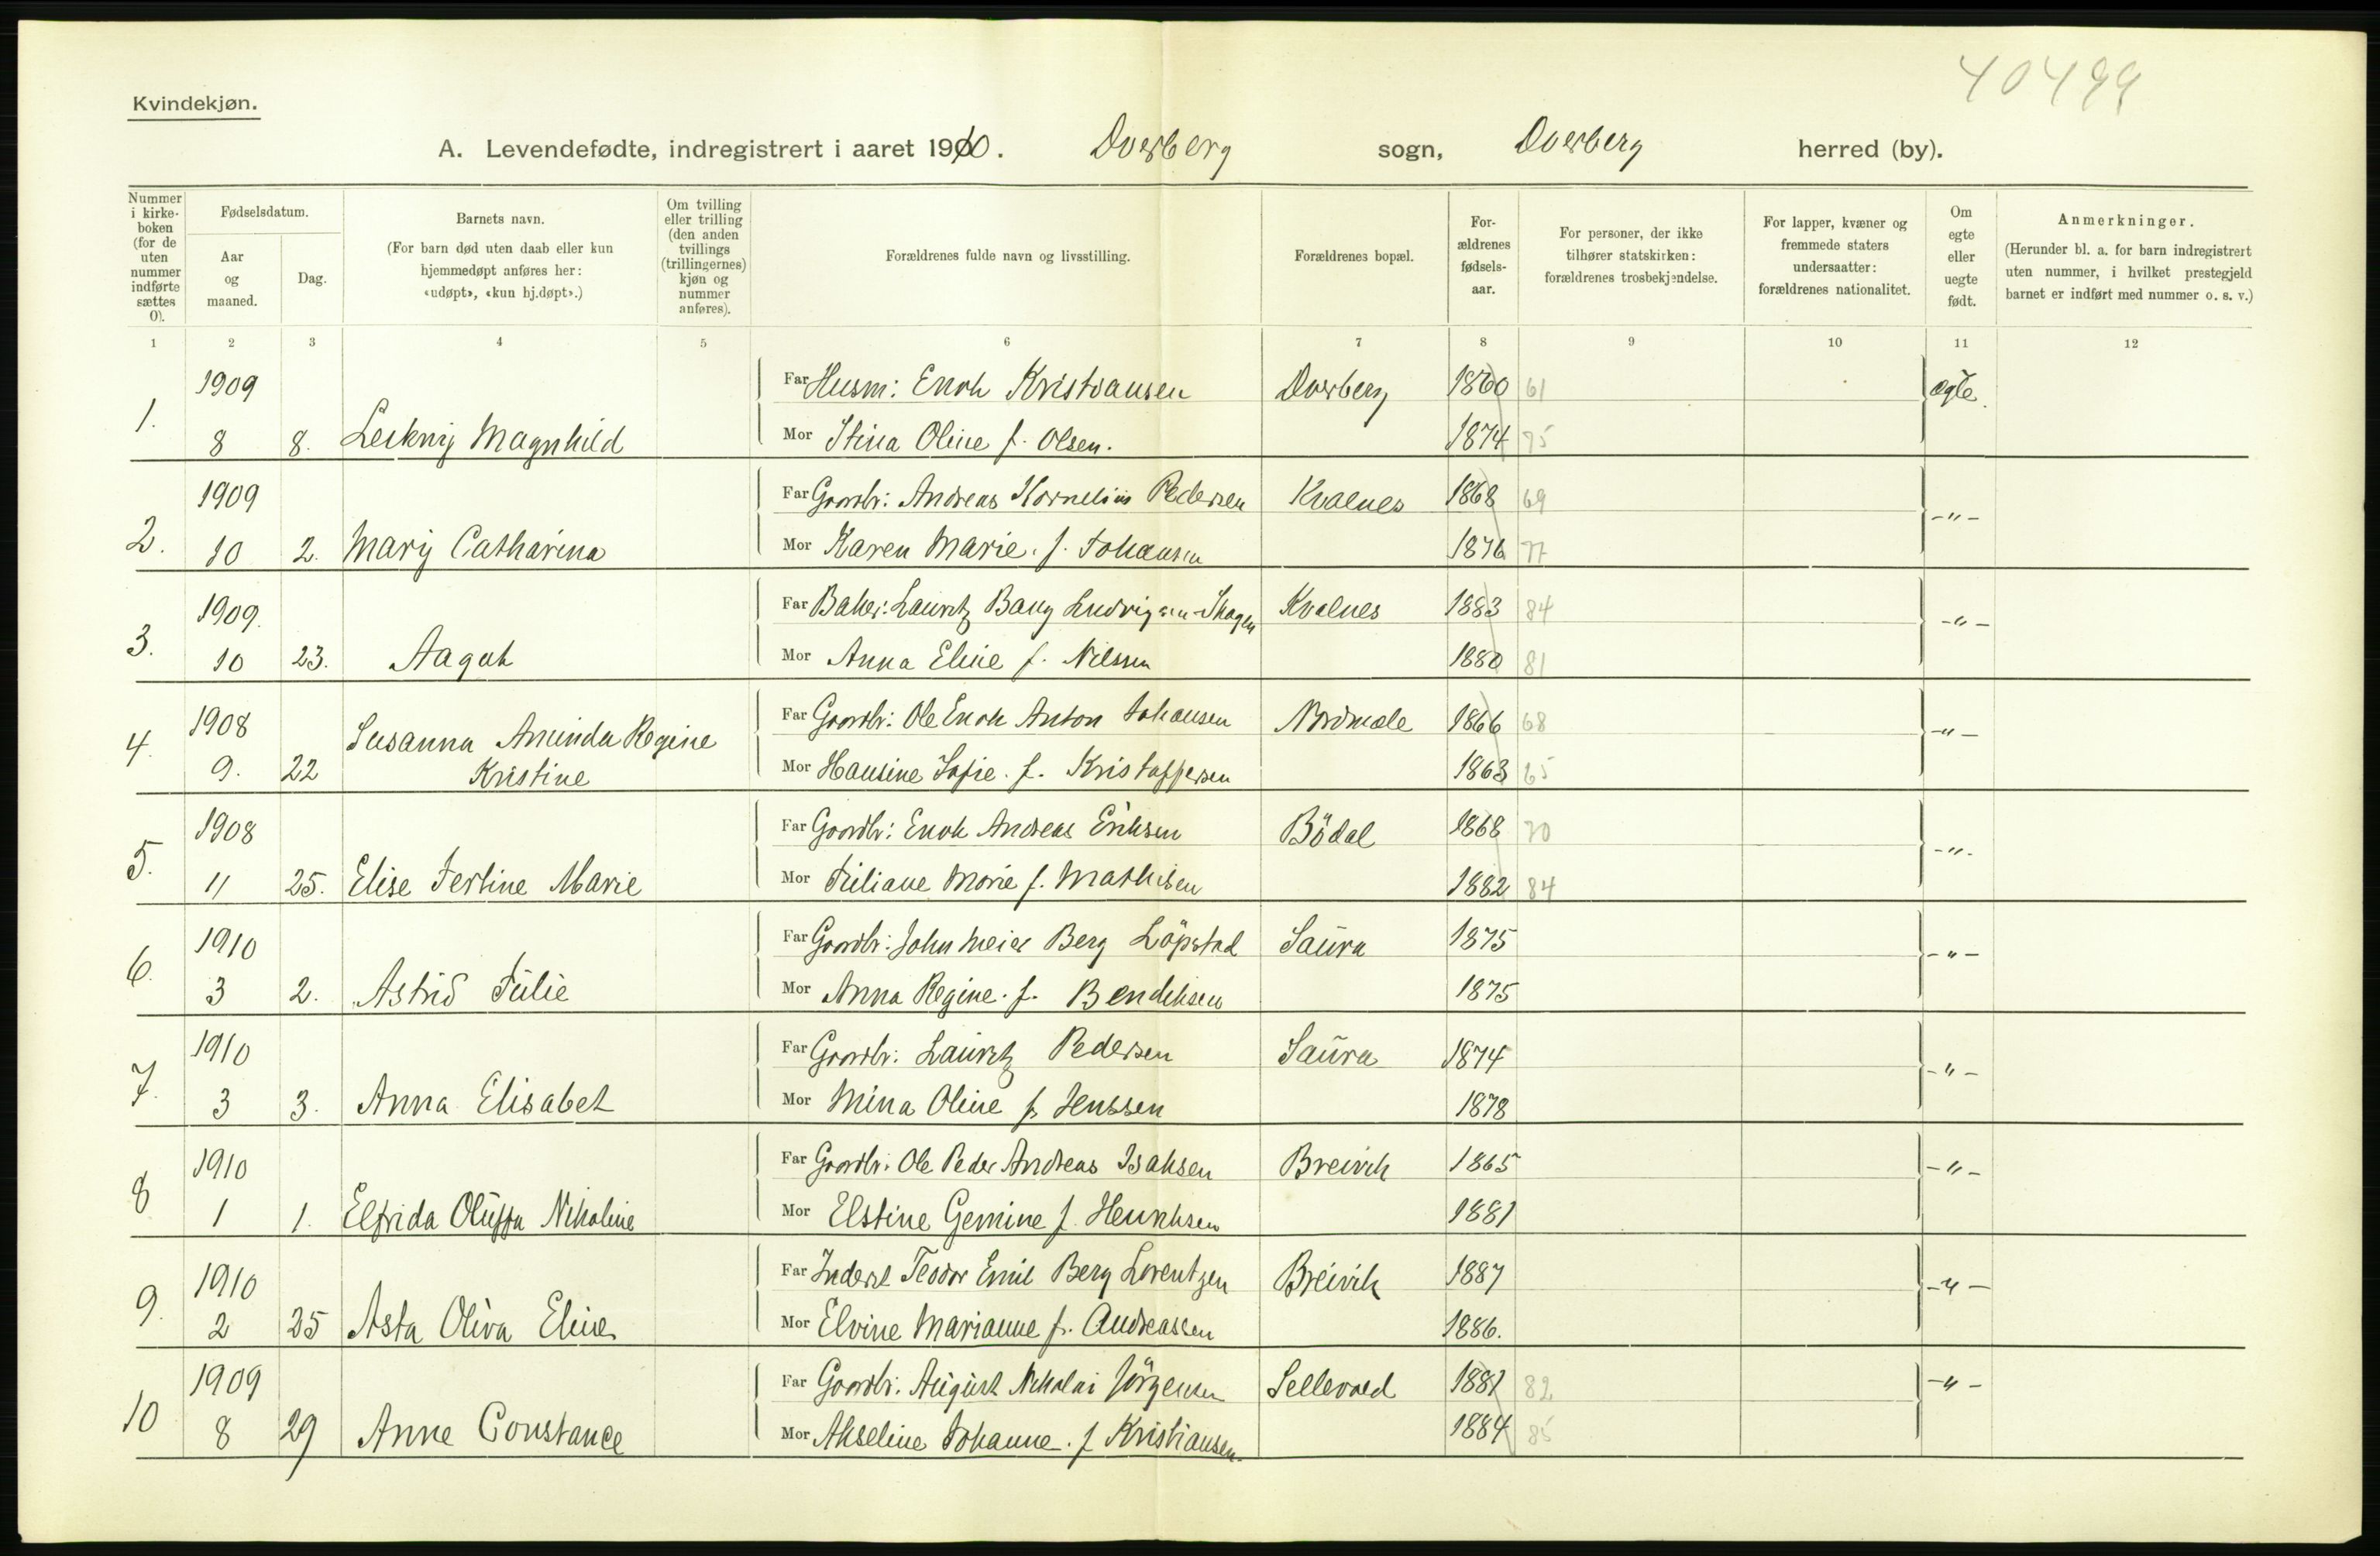 40499
Kvindekjøn.
A. Levendefødte, indregistrert i aaret 1910. Dverberg sogn, Dverberg herred (by).
Nummer i kirke-boken (for de uten nummer indførte sættes 0).
Fødselsdatum.
Aar og maaned.
Dag.
Barnets navn.
(For barn død uten daab eller kun hjemmedøpt anføres her: «udøpt», «kun hj.døpt».)
Om tvilling eller trilling (den anden tvillings (trillingernes) kjøn og nummer anføres).
Forældrenes fulde navn og livsstilling.
Forældrenes bopæl.
For-ældrenes fødsels-aar.
For personer, der ikke tilhører statskirken: forældrenes trosbekjendelse.
For lapper, kvæner og fremmede staters undersaatter: forældrenes nationalitet.
Om egte eller uegte født.
Anmerkninger.
(Herunder bl. a. for barn indregistrert uten nummer, i hvilket prestegjeld barnet er indført med nummer o. s. v.)
1 2 3 4 5 6 7 8 9 10 11 12
1909 Far Husm: Enok Kristiansen Dverberg 1860 61 ægte
1. 8 8. Leiknij Magnhild Mor Stina Oline f. Olsen. 1874 75
1909 Far Gaardbr: Andreas Kornelius Pedersen Kvalnes 1868 69 -"-
2. 10 2. Marij Catharina Mor Karen Marie. f. Johansen 1876 77
1909. Far Baker: Lauritz Bang Ludvigsen-Skagen Kvalnes 1883 84 -"-
3. 10 23. Aagot Mor Anna Eline f. Nilssen 1880 81
1908 Far Gaardbr: Ole Enok Anton Johansen Nordmele 1866 68 -"-
4. 9. 22 Susanna Aminda Regine Kristine Mor Hansine Sofie. f. Kristoffersen 1863 65
1908 Far Gaardbr: Enok Andreas Eriksen Bödal 1868 70 -"-
5. 11 25. Elise Jertine Marie Mor Juliane Marie f. Mathisen 1882 84
1910 Far Gaardbr: John Meier Berg Löpstad Saura 1875 -"-
6. 3 2. Astrid Julie Mor Anna Regine. f. Bendiksen 1875
1910 Far Gaardbr: Lauritz Pedersen Saura 1874 -"-
7. 3 3. Anna Elisabet Mor Mina Oline f. Jenssen 1878
1910 Far Gaardbr: Ole Peder Andreas Isaksen Breivik 1865 -"-
8 1 1. Elfrida Oluffa Nikoline Mor Elstine Gemine f. Henriksen 1881
1910 Far Inderst Teodor Emil Berg Lorentzen Breivik 1887 -"-
9. 2 25 Asta Oliva Eline Mor Elvine Marianne f. Andreassen 1886.
1909 Far Gaardbr. August Nikolai Jörgensen Sellevold 1881 82 -"-
10 8 29 Anne Constance Mor Akseline Johanne. f. Kristiansen. 1884 85